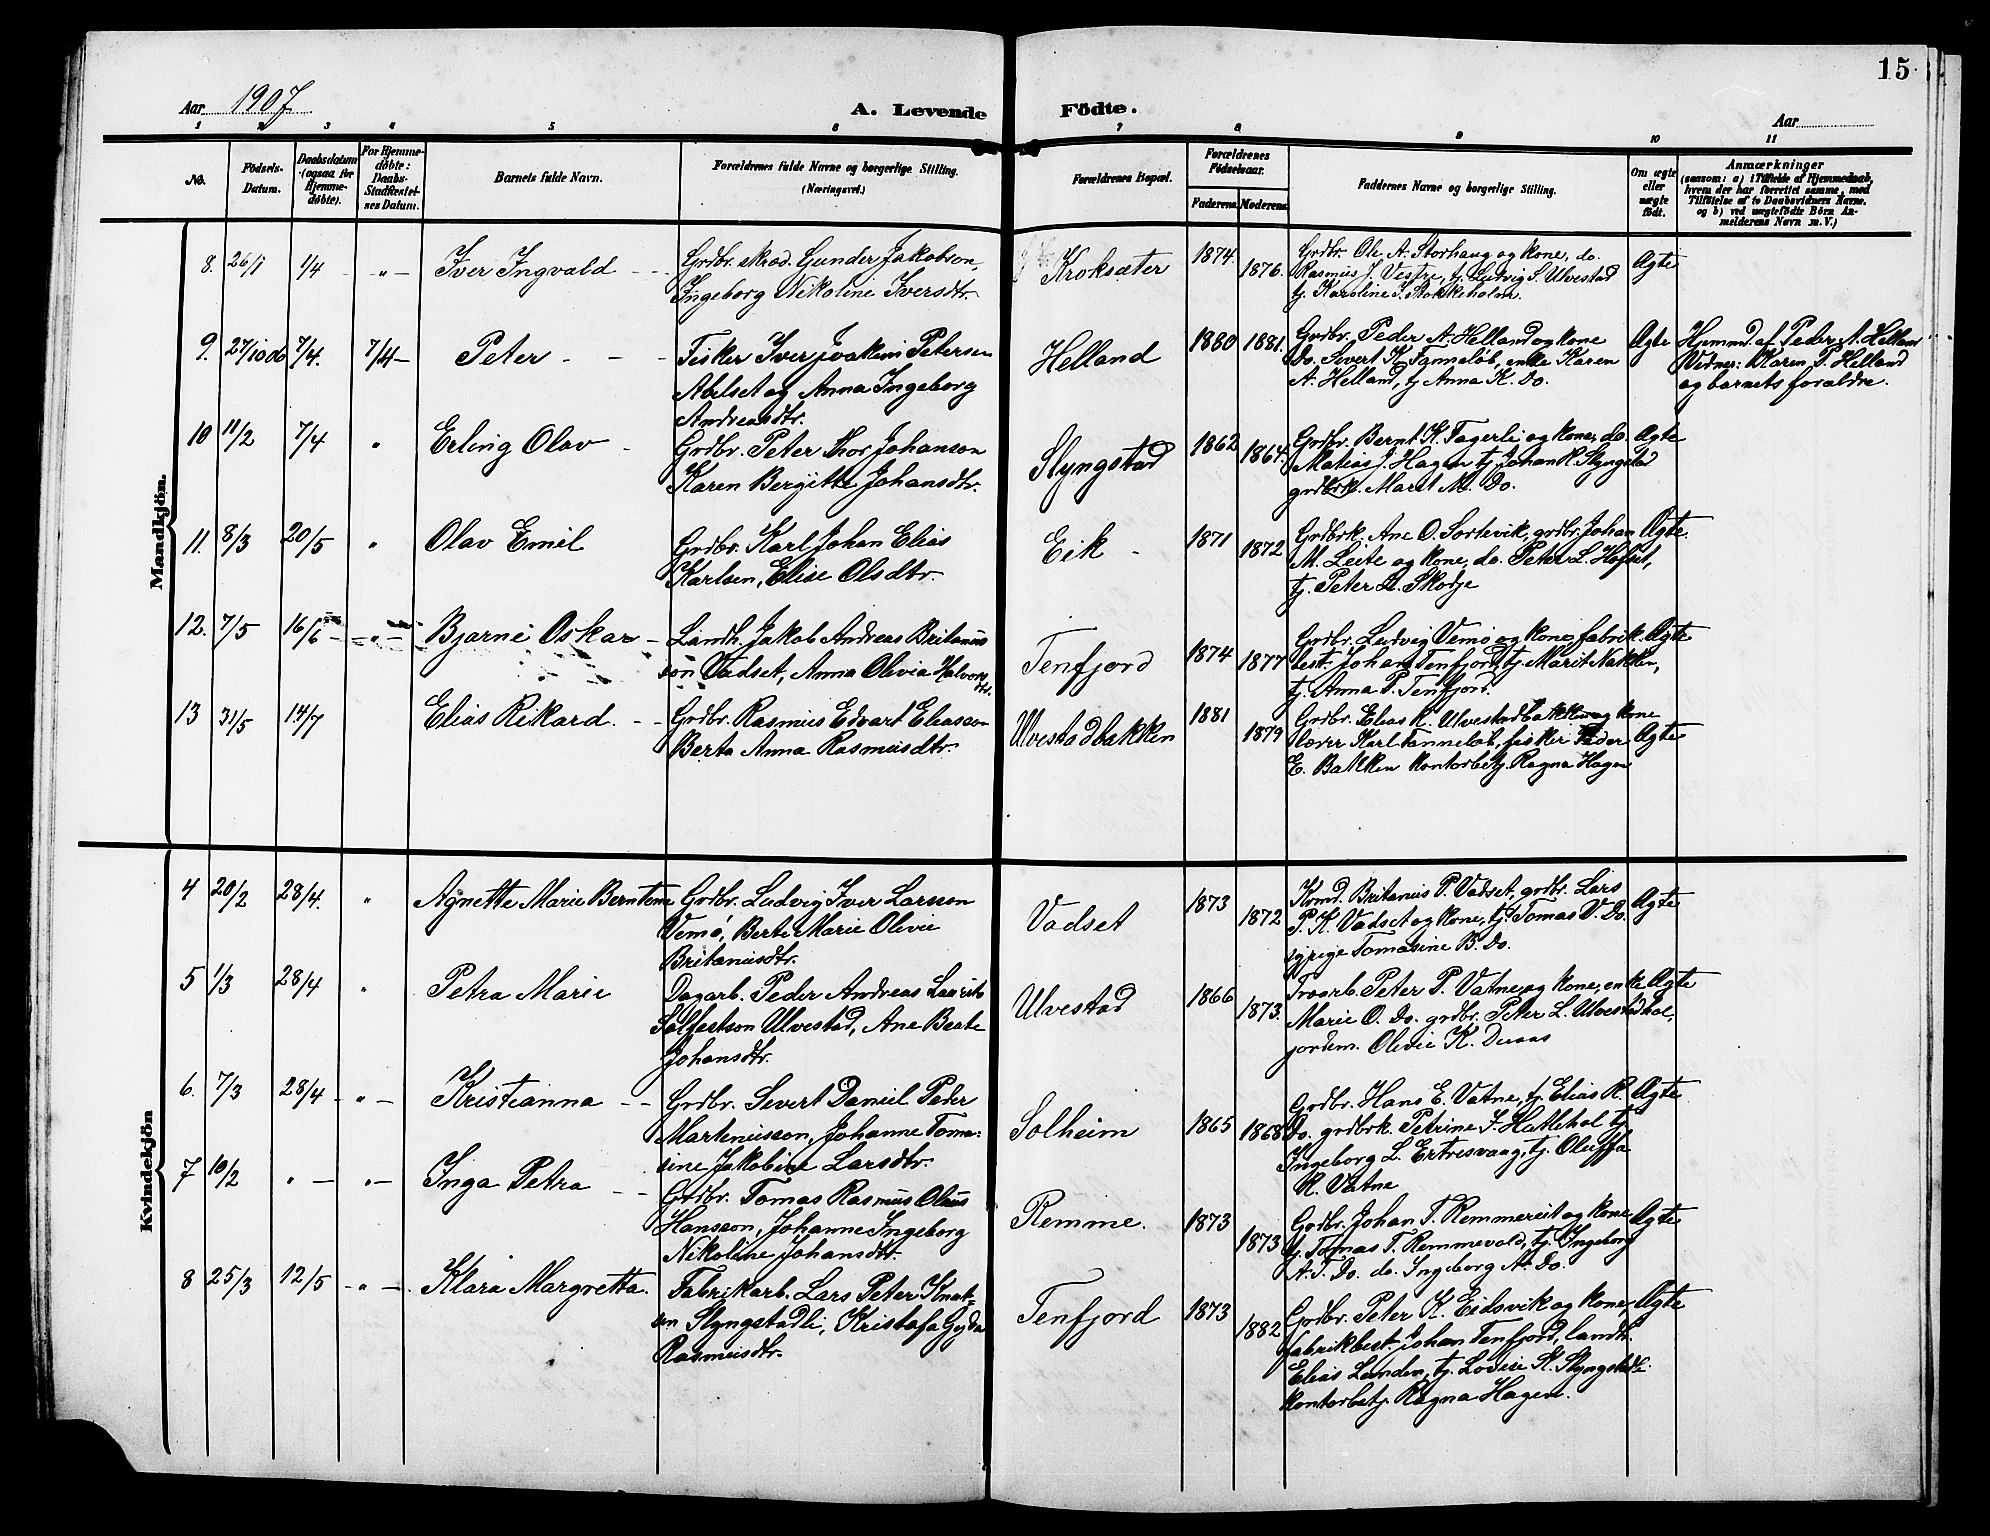 15.
Aar 1907
A. Levende Födte.
Aar
1 2 3 4 5 6 7 8 9 10 11
No.
Födsels-Datum.
Daabsdatum (ogsaa for Hjemme-döbte).
For Hjemme-döbte: Daabs-Stadfæstel-ses Datum.
Barnets fulde Navn.
Forældrenes fulde Navne og borgerlige Stilling.
(Næringsvei.)
Forældrenes Bopæl.
Forældrenes Födselsaar.
Faderens. Moderens.
Faddernes Navne og borgerlige Stilling.
Om ægte eller uægte födt.
Anmærkninger
(saasom: a) i Tilfælde af Hjemmedaab,
hvem der har forrettet samme, med
Tilföielse af to Daabsvidners Navne.
og b) ved uægtefödte Börn An-
melderens Navn m.V.)
Mandkjön.
8. 26/1 1/4 - „ - Iver Ingvald - -
Grdbr. skræd. Gunder Jakobson,
Ingeborg Nikoline Iversdtr.
Kroksæter 1874 1876.
Grdbr. Ole A. Storhaug og kone, do.
Rasmus J. Vestre, tj. Ludvig S. Ulvestad
tj. Karoline I. Stokkeholm.
Ægte
9. 27/10 06 7/4. 7/4 - Peter - - -
Fisker Iver Joakim Petersen
Abelset og Anna Ingeborg
Andreasdtr.
Helland 1880 1881.
Grdbr. Peder A. Helland og kone
Do. Sivert K. Tanneløb, enke Karen
A. Helland, tj. Anna K. Do.
Ægte
Hjemmd. af Peder A. Helland
Vidner: Karen P. Helland
og barnets forældre.
10 11/2 7/4 „ Erling Olav -
Grdbr. Peter Thor Johanson
Karen Bergitte Johansdtr.
Slyngstad 1862 1864.
Grdbr. Bernt K. Fagerli og kone, do.
Matias J. Hagen tj. Johan K. Slyngstad
grdbrk. Marit M. Do.
Ægte
11. 8/3 20/5 „ Olav Emil
Grdbr. Karl Johan Elias
Karlsen, Elise Olsdtr.
Eik - 1871 1872
Grdbrk. Ane O. Sortevik, grdbr. Johan
M. Leite og kone, do. Peter L. Hofset,
tj. Peter L. Skodje
Ægte.
12. 7/5 16/6 - „ - Bjarne Oskar -
Landh. Jakob Andreas Britanius
søn Vadset, Anna Olivia Halvors
dtr.
Tenfjord 1874 1877
Grdbr. Ludvig Vemø og kone, fabrik.
best. Johan Tenfjord, tj. Marit Nakken,
tj. Anna P. Tenfjord.
Ægte
13 31/5 14/7 Elias Rikard. - -
Grdbr. Rasmus Edvart Eliasson
Berta Anna Rasmusdtr.
Ulvestadbakken 1881 1879
Grdbr. Elias R. Ulvestadbakken og kone
lærer Karl Tanneløb, fisker Peder
E. Bakken kontorbetj. Ragna Hagen
Ægte
Kvindekjön
4 20/2 28/4. „ Agnette Marie Berntine
Grdbr. Ludvig Iver Larsson
Vemø, Berte Marie Olivie
Britaniusdtr.
Vadset 1873 1872
Komd. Britanius P. Vadset, grdbr. Lars
P. K. Vadset og kone, tj. Tomas V. Do.
sypige Tomasine B. Do.
Ægte
5 1/3 28/4 „ Petra Marie
Dagarb. Peder Andreas Laurits
Salfestson Ulvestad, Ane Beate
Johansdtr.
Ulvestad 1866 1873.
Peter P. Vatne og kone, enke
Marie O. Do. grdbr. Peter L. Ulvestadhol,
jordem. Olivie K. Duaas
Ægte
6. 7/3 28/4 - „ - Kristianna - -
Grdbr. Severt Daniel Peder
Martinusson, Johanne Toma-
sine Jakobine Larsdtr.
Solheim 1865 1868
Grdbr. Hans E. Vatne, tj. Elias R.
Do. grdbrk. Petrine J. Hattehol tj.
Ingeborg L. Ertresvaag, tj. Oluffa
R. Vatne
Ægte
7 10/2 „ - „ - Inga Petra - -
Grdbr. Tomas Rasmus Olaus
Hansson, Johanne Ingeborg
Nikoline Johansdtr.
Remme. 1873 1873
Grdbr. Johan T. Remmereit og kone
tj. Tomas T. Remmevold, tj. Ingeborg
A. T. Do. do. Ingeborg A. Do.
Ægte
8 25/3 12/5 - „ - Klara Margretta.
Fabrikarb. Lars Peter Knut-
sen Slyngstadli, Kristofa Gyda
Rasmusdtr.
Tenfjord 1873 1882
Grdbr. Peter K. Eidsvik og kone,
fabrikbest. Johan Tenfjord, landh.
Elias Lunden, tj. Lovise K. Slyngstadli
kontorbetj. Ragna Hagen.
Ægte